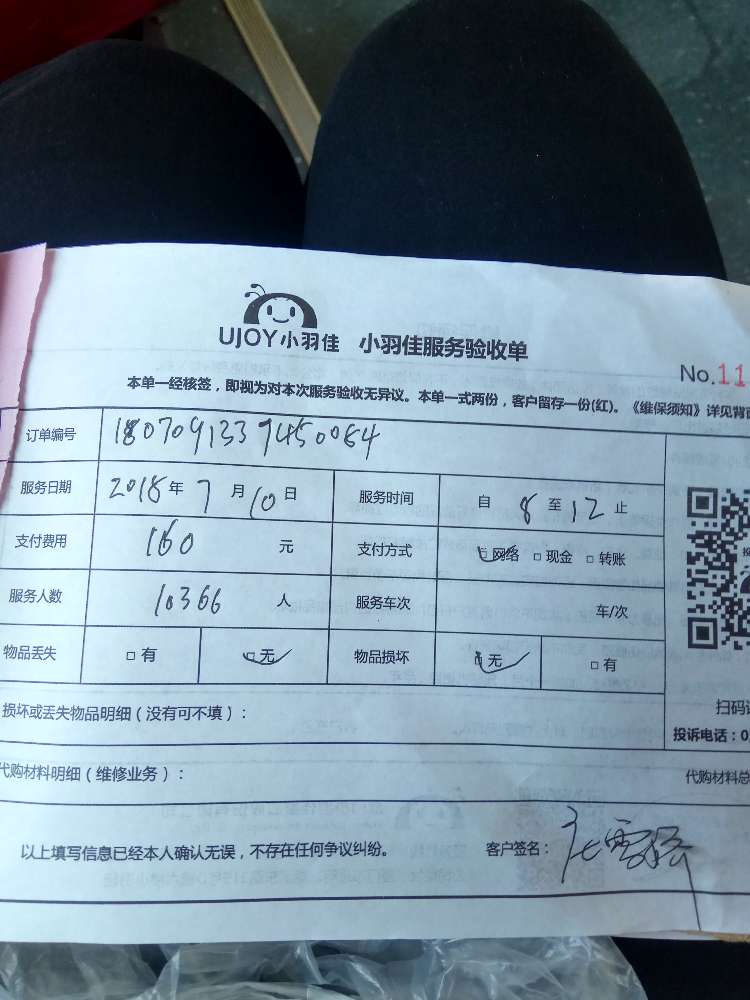 UJOY小羽佳 小羽佳服务验收单
No.11
本单一经核签，即视为对本次服务验收无异议。本单一式两份，客户留存一份(红)。《维保须知》详见背面
订单编号 18070913379450064
服务日期 2018年7月10日 服务时间 自8至12止
支付费用 160 元 支付方式 □网络 □现金 □转账
服务人数 10366 人 服务车次 车/次
物品丢失 □有 □无 物品损坏 □无 □有
损坏或丢失物品明细（没有可不填）：
扫码
投诉电话：0
代购材料明细（维修业务）： 代购材料总
以上填写信息已经本人确认无误，不存在任何争议纠纷。 客户签名：